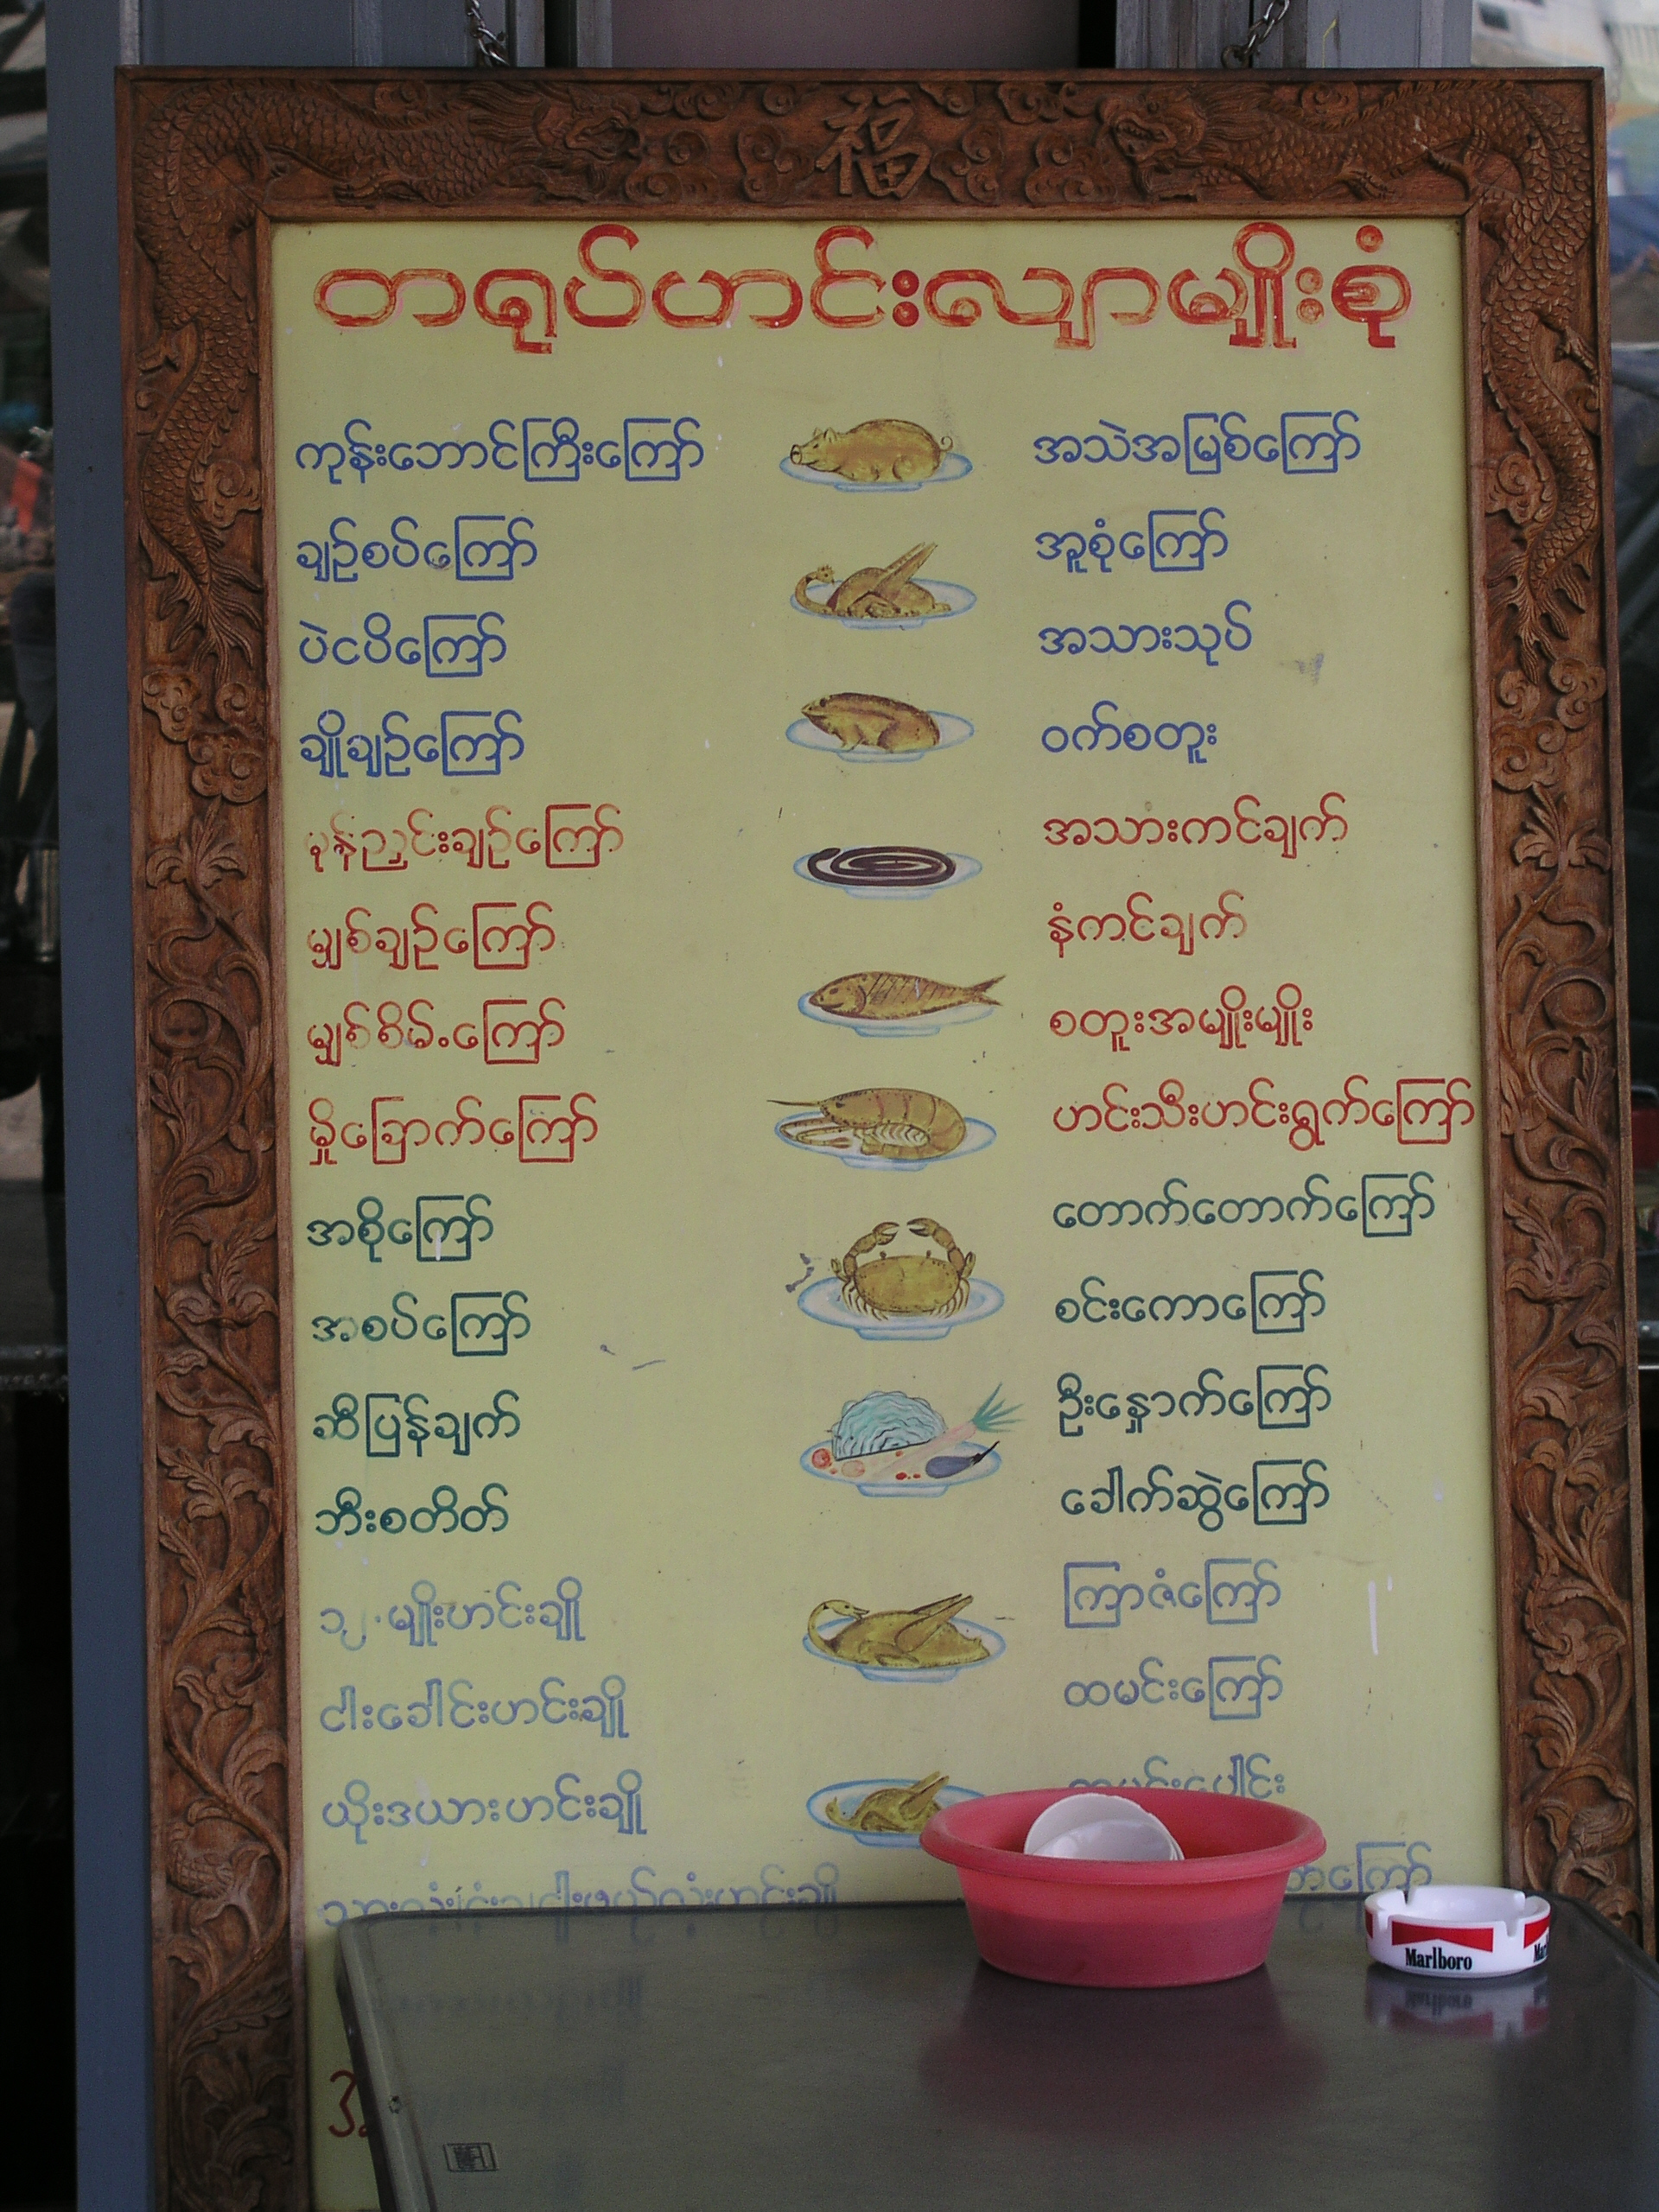 福
တရုပ်ဟင်းလျာမျိုးစုံ
ကုန်းဘောင်ကြီးကြော်
ချဉ်စပ်ကြော်
ပဲငပိကြော်
ချိုချဉ်ကြော်
ပုန်ညှင်းချဉ်ကြော်
မျှစ်ချဉ်ကြော်
မျှစ်စိမ်းကြော်
မှိုခြောက်ကြော်
အစိုကြော်
အစပ်ကြော်
ဆီပြန်ချက်
ဘီးစတိတ်
၁၂ မျိုးဟင်းချို
ငါးခေါင်းဟင်းချို
ယိုးဒယားဟင်းချို
အသဲအမြစ်ကြော်
အူစုံကြော်
အသားသုပ်
ဝက်စတူး
အသားကင်ချက်
နံကင်ချက်
စတူးအမျိုးမျိုး
ဟင်းသီးဟင်းရွက်ကြော်
တောက်တောက်ကြော်
စင်းကောကြော်
ဦးနှောက်ကြော်
ခေါက်ဆွဲကြော်
ကြာဇံကြော်
ထမင်းကြော်
ထမင်းပေါင်း
ကြော်
Marlboro